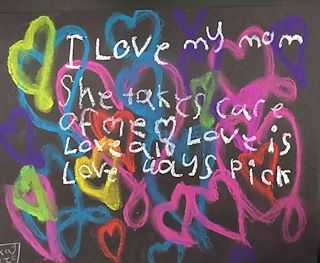 I LOVE my mom
She takes care
of me
Love and Love is
Love ways pick